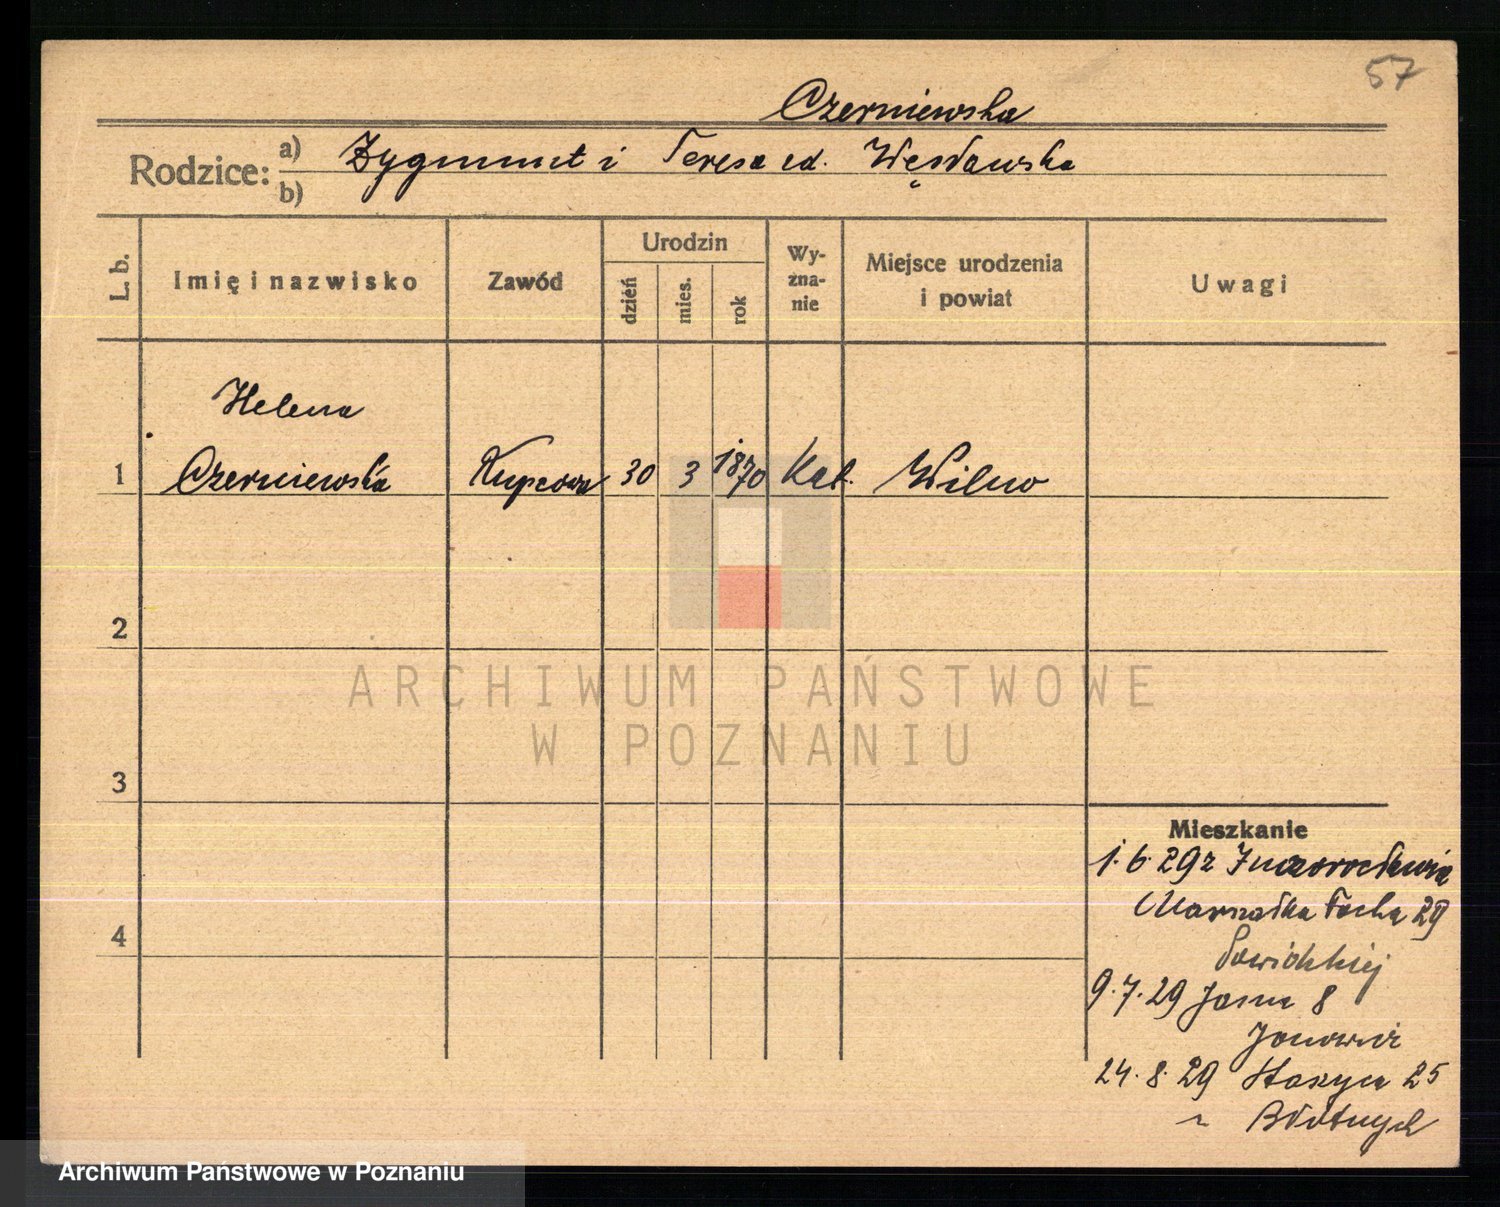 57
Czerniewska
Rodzice: a) Zygmunt i Teresa zd. Węsławska
b)
L. b. Imię i nazwisko Zawód Urodzin dzień mies. rok Wy-zna-nie Miejsce urodzenia i powiat Uwagi
Helena
1 Czerniewska Kupcowa 30 3 1870 Kat. Wilno
2
ARCHIWUM PAŃSTWOWE
W POZNANIU
3
Mieszkanie
1.6.29 z Inowrocławia
Marszałka Focha 29
4
9.7.29 Jasna 8
24.8.29 Staszyca 25
Archiwum Państwowe w Poznaniu